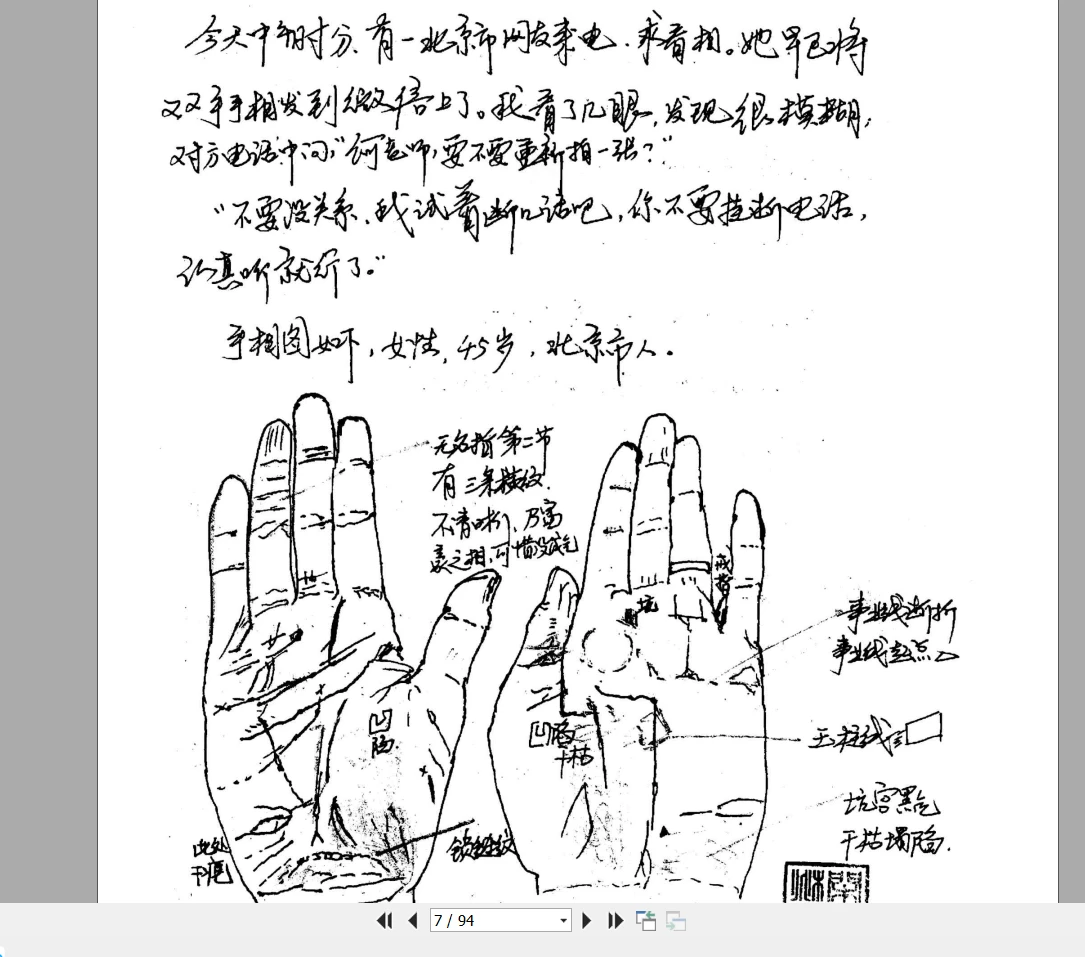 今天中午时分、有一北京市网友来电、求看相。她早已将
双手手相发到微信上了。我看了几眼,发现很模糊,
对方电话中问,“何老师,要不要重新拍一张?”
“不要没关系、我试着断几活吧,你不要挂断电话,
认真听就行了。”
手相图如下,女性,45岁,北京市人。
无名指第二节
有三条横纹.
不清晰、乃富
豪之相,可惜没成气
戒指
坑
事业线断折
事业线起点△
凹陷.
凹陷
干枯
玉柱线
坎宫黑气
干枯塌陷.
此处
锁链纹
7 / 94